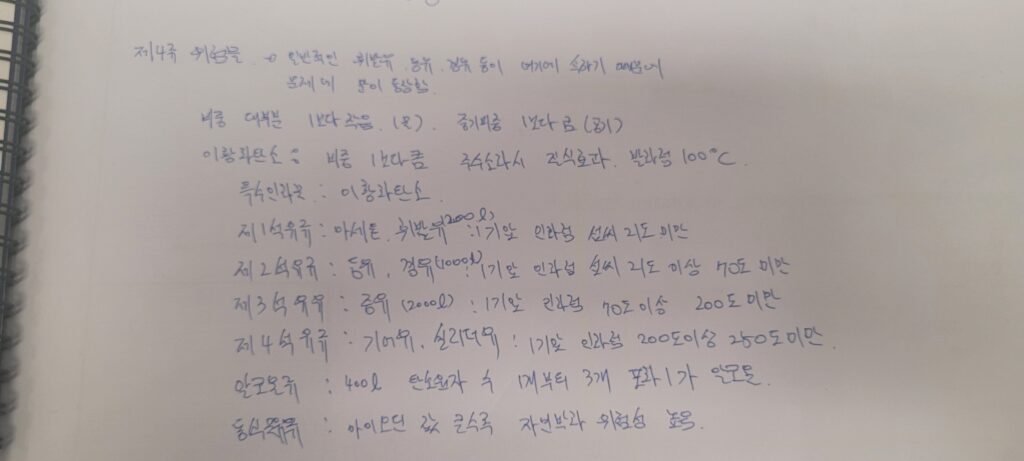 제4류 위험물 → 일반적인 휘발유, 등유, 경유 등이 여기에 속하기 때문에
문제에 많이 등장함.
비중 대부분 1보다 작음 (물). 증기비중 1보다 큼 (공기)
이황화탄소 : 비중 1보다 큼 주수소화시 질식효과. 발화점 100°C.
특수인화물 : 이황화탄소.
제1석유류 : 아세톤, 휘발유(200l) : 1기압 인화점 섭씨 21도미만
제2석유류 : 등유, 경유(1000l) : 1기압 인화점 섭씨 21도 이상 70도 미만
제3석유류 : 중유 (2000l) : 1기압 인화점 70도이상 200도미만
제4석유류 : 기어유, 실린더유 : 1기압 인화점 200도이상 250도미만.
알코올류 : 400l 탄소원자 수 1개부터 3개 포화1가 알코올.
동식물유류 : 아이오딘 값 클수록 자연발화 위험성 높음.